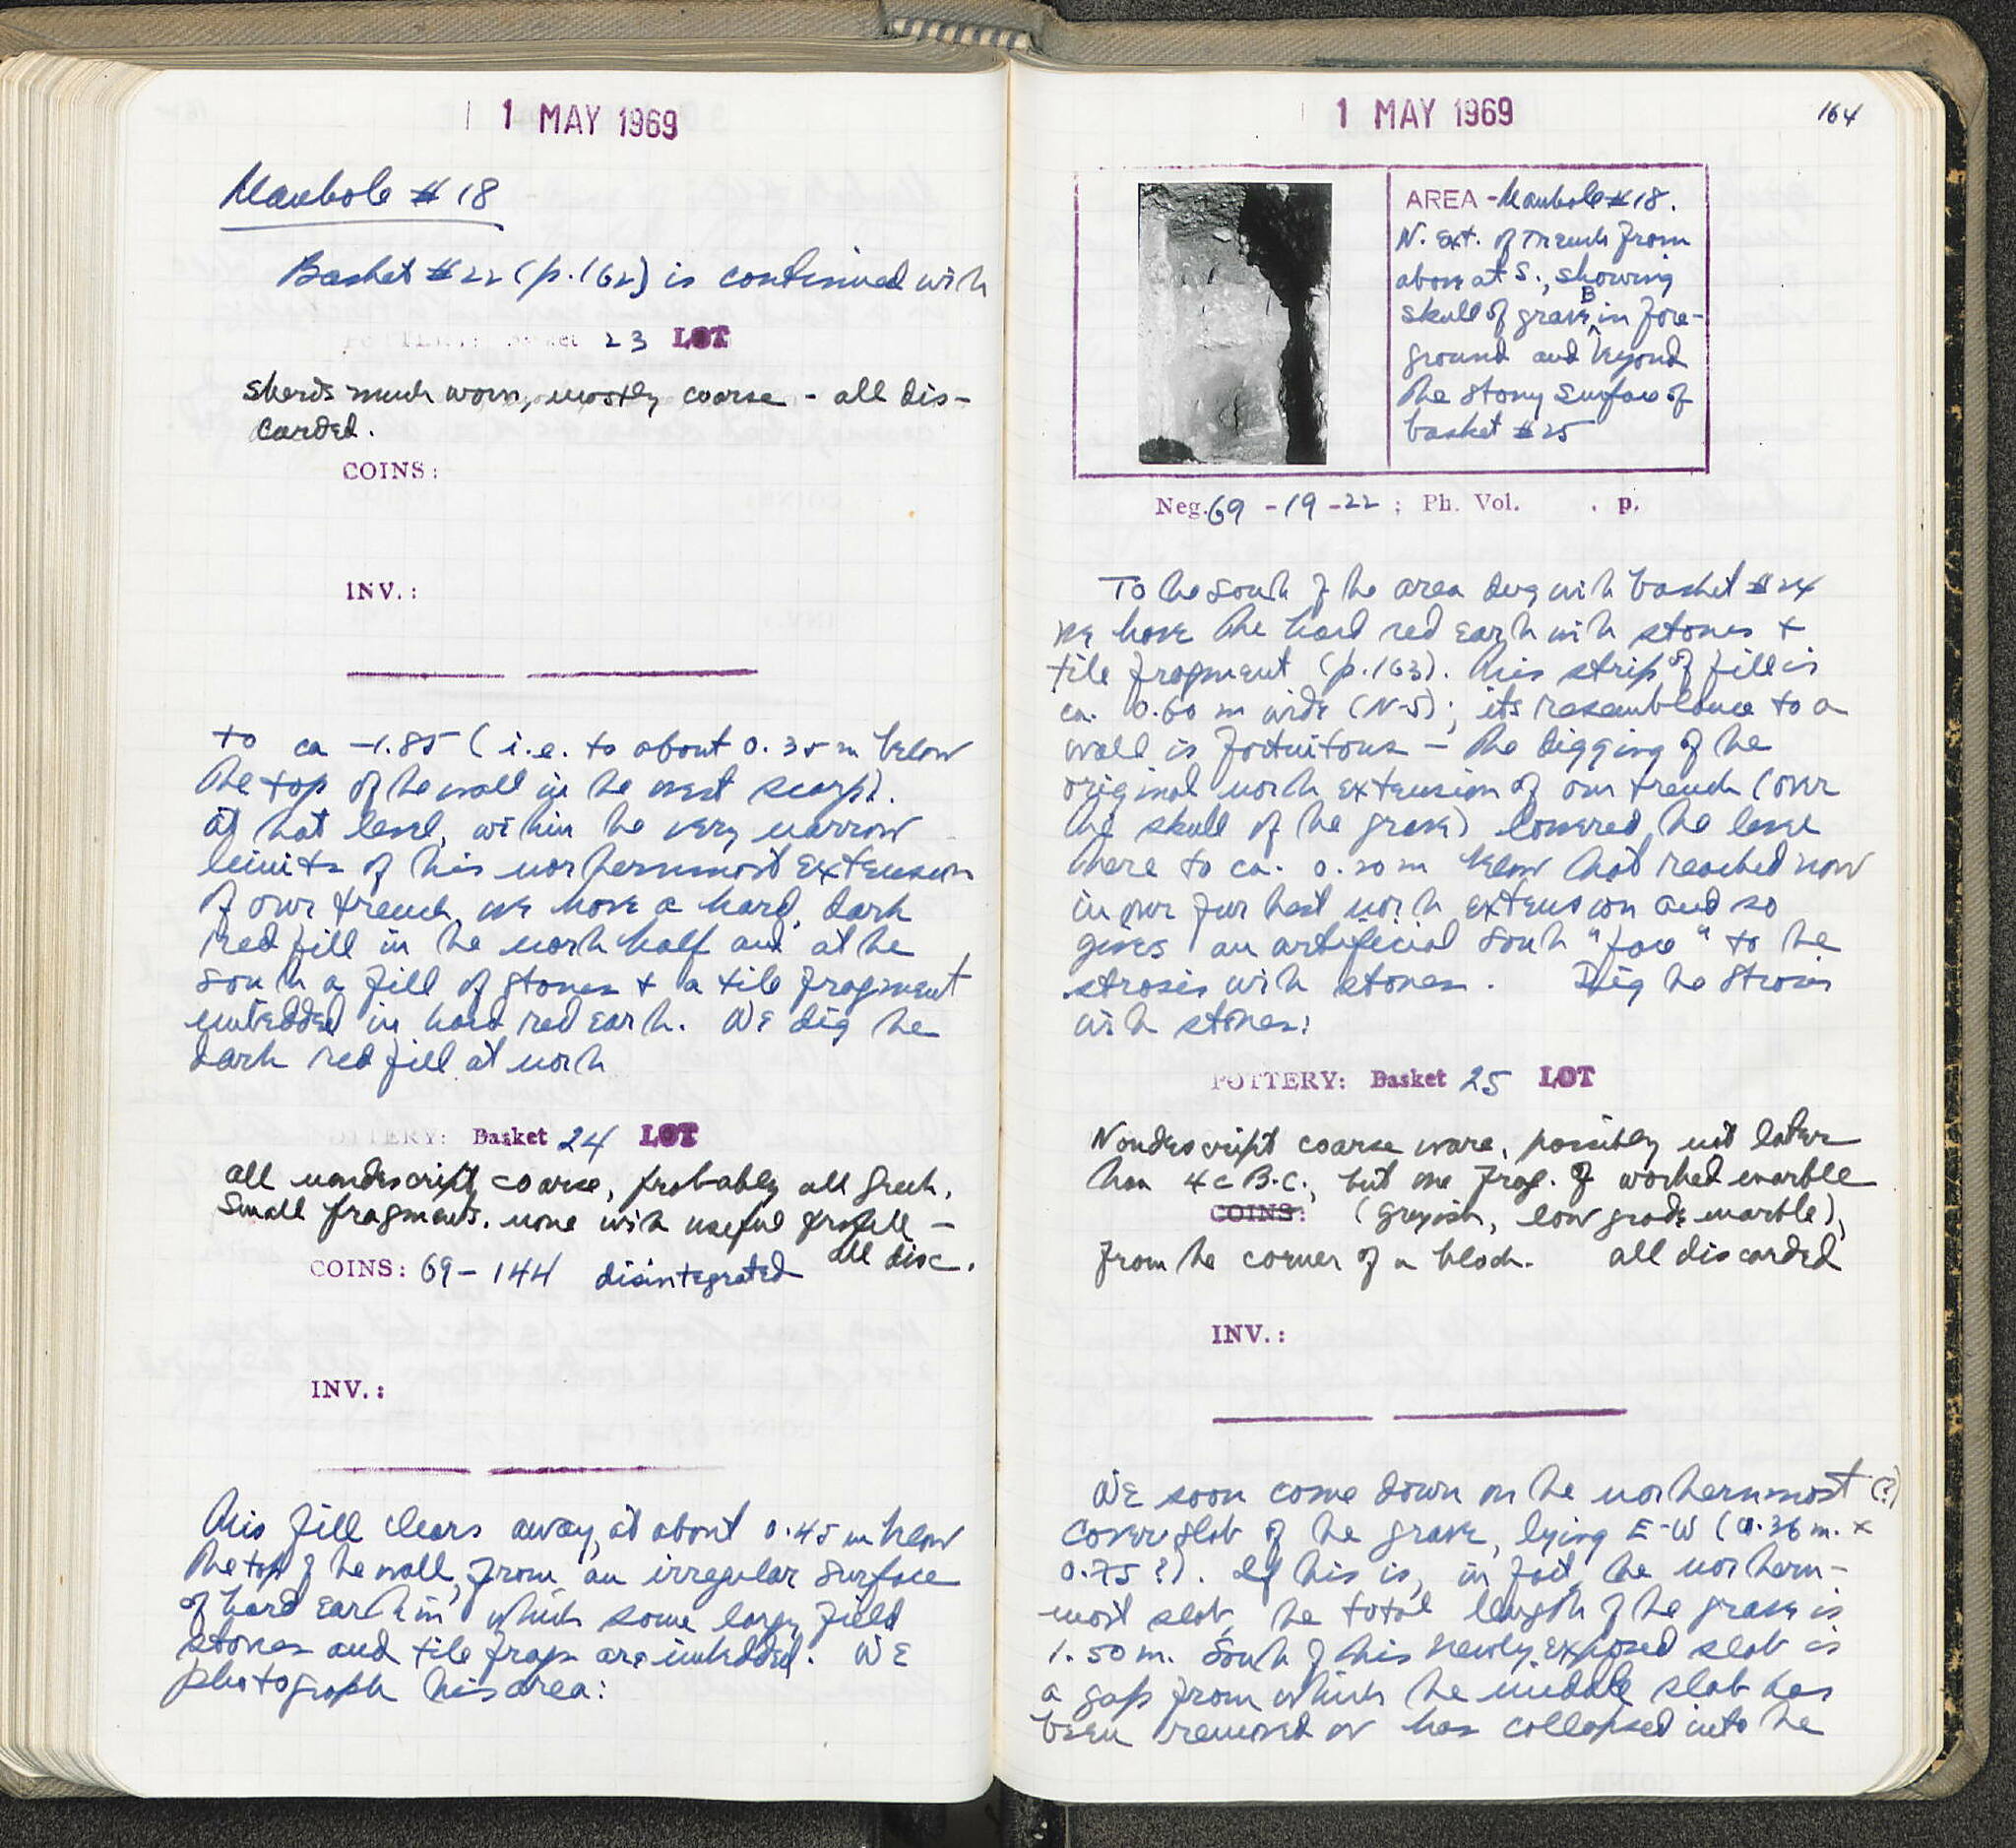 1 MAY 1969
Manhole # 18
Basket # 22 (p. 162) is continued with
POTTERY: Basket 23 LOT
Sherds much worn, mostly coarse - all dis-
carded.
COINS:
INV.:
to ca -1.85 (i.e. to about 0.35 m below
the top of the wall in the west scarp).
At that level, within the very narrow
limits of this northernmost extension
of our trench, we have a hard, dark
red fill in the north half and at the
south a fill of stones + a tile fragment
imbedded in hard red earth. We dig the
dark red fill at north
POTTERY: Basket 24 LOT
all nondescript coarse, probably all Greek.
Small fragments. none with useful profile -
all disc.
COINS: 69 - 144 disintegrated
INV.:
This fill clears away, at about 0.45 m below
the top of the wall, from an irregular surface
of hard earth in which some large field
stones and tile frags are imbedded. We
photograph this area:
1 MAY 1969
164
AREA - Manhole # 18.
N. Ext. of trench from
above at S., showing
skull of grave B in fore-
ground and beyond
the stony surface of
basket # 25
Neg. 69 - 19 - 22 ; Ph. Vol. . p.
To the south of the area dug with basket # 24
we have the hard red earth with stones +
tile fragment (p. 163). This strip of fill is
ca. 0.60 m wide (N-S); its resemblance to a
wall is fortuitous - the digging of the
original north extension of our trench (over
the skull of the grave) lowered the level
there to ca. 0.20 m below that reached now
in our furthest north extension and so
gives an artificial south "face" to the
strosis with stones. Dig the strosis
with stones:
POTTERY: Basket 25 LOT
Nondescript coarse ware, possibly not later
than 4 c B.C., but one frag. of worked marble
COINS: (greyish, low grade marble),
from the corner of a block. all discarded
INV.:
We soon come down on the northernmost (?)
cover slab of the grave, lying E-W (0.36 m. x
0.75 ?). If this is, in fact, the northern-
most slab, the total length of the grave is
1.50 m. South of this newly exposed slab is
a gap from which the middle slab has
been removed or has collapsed into the